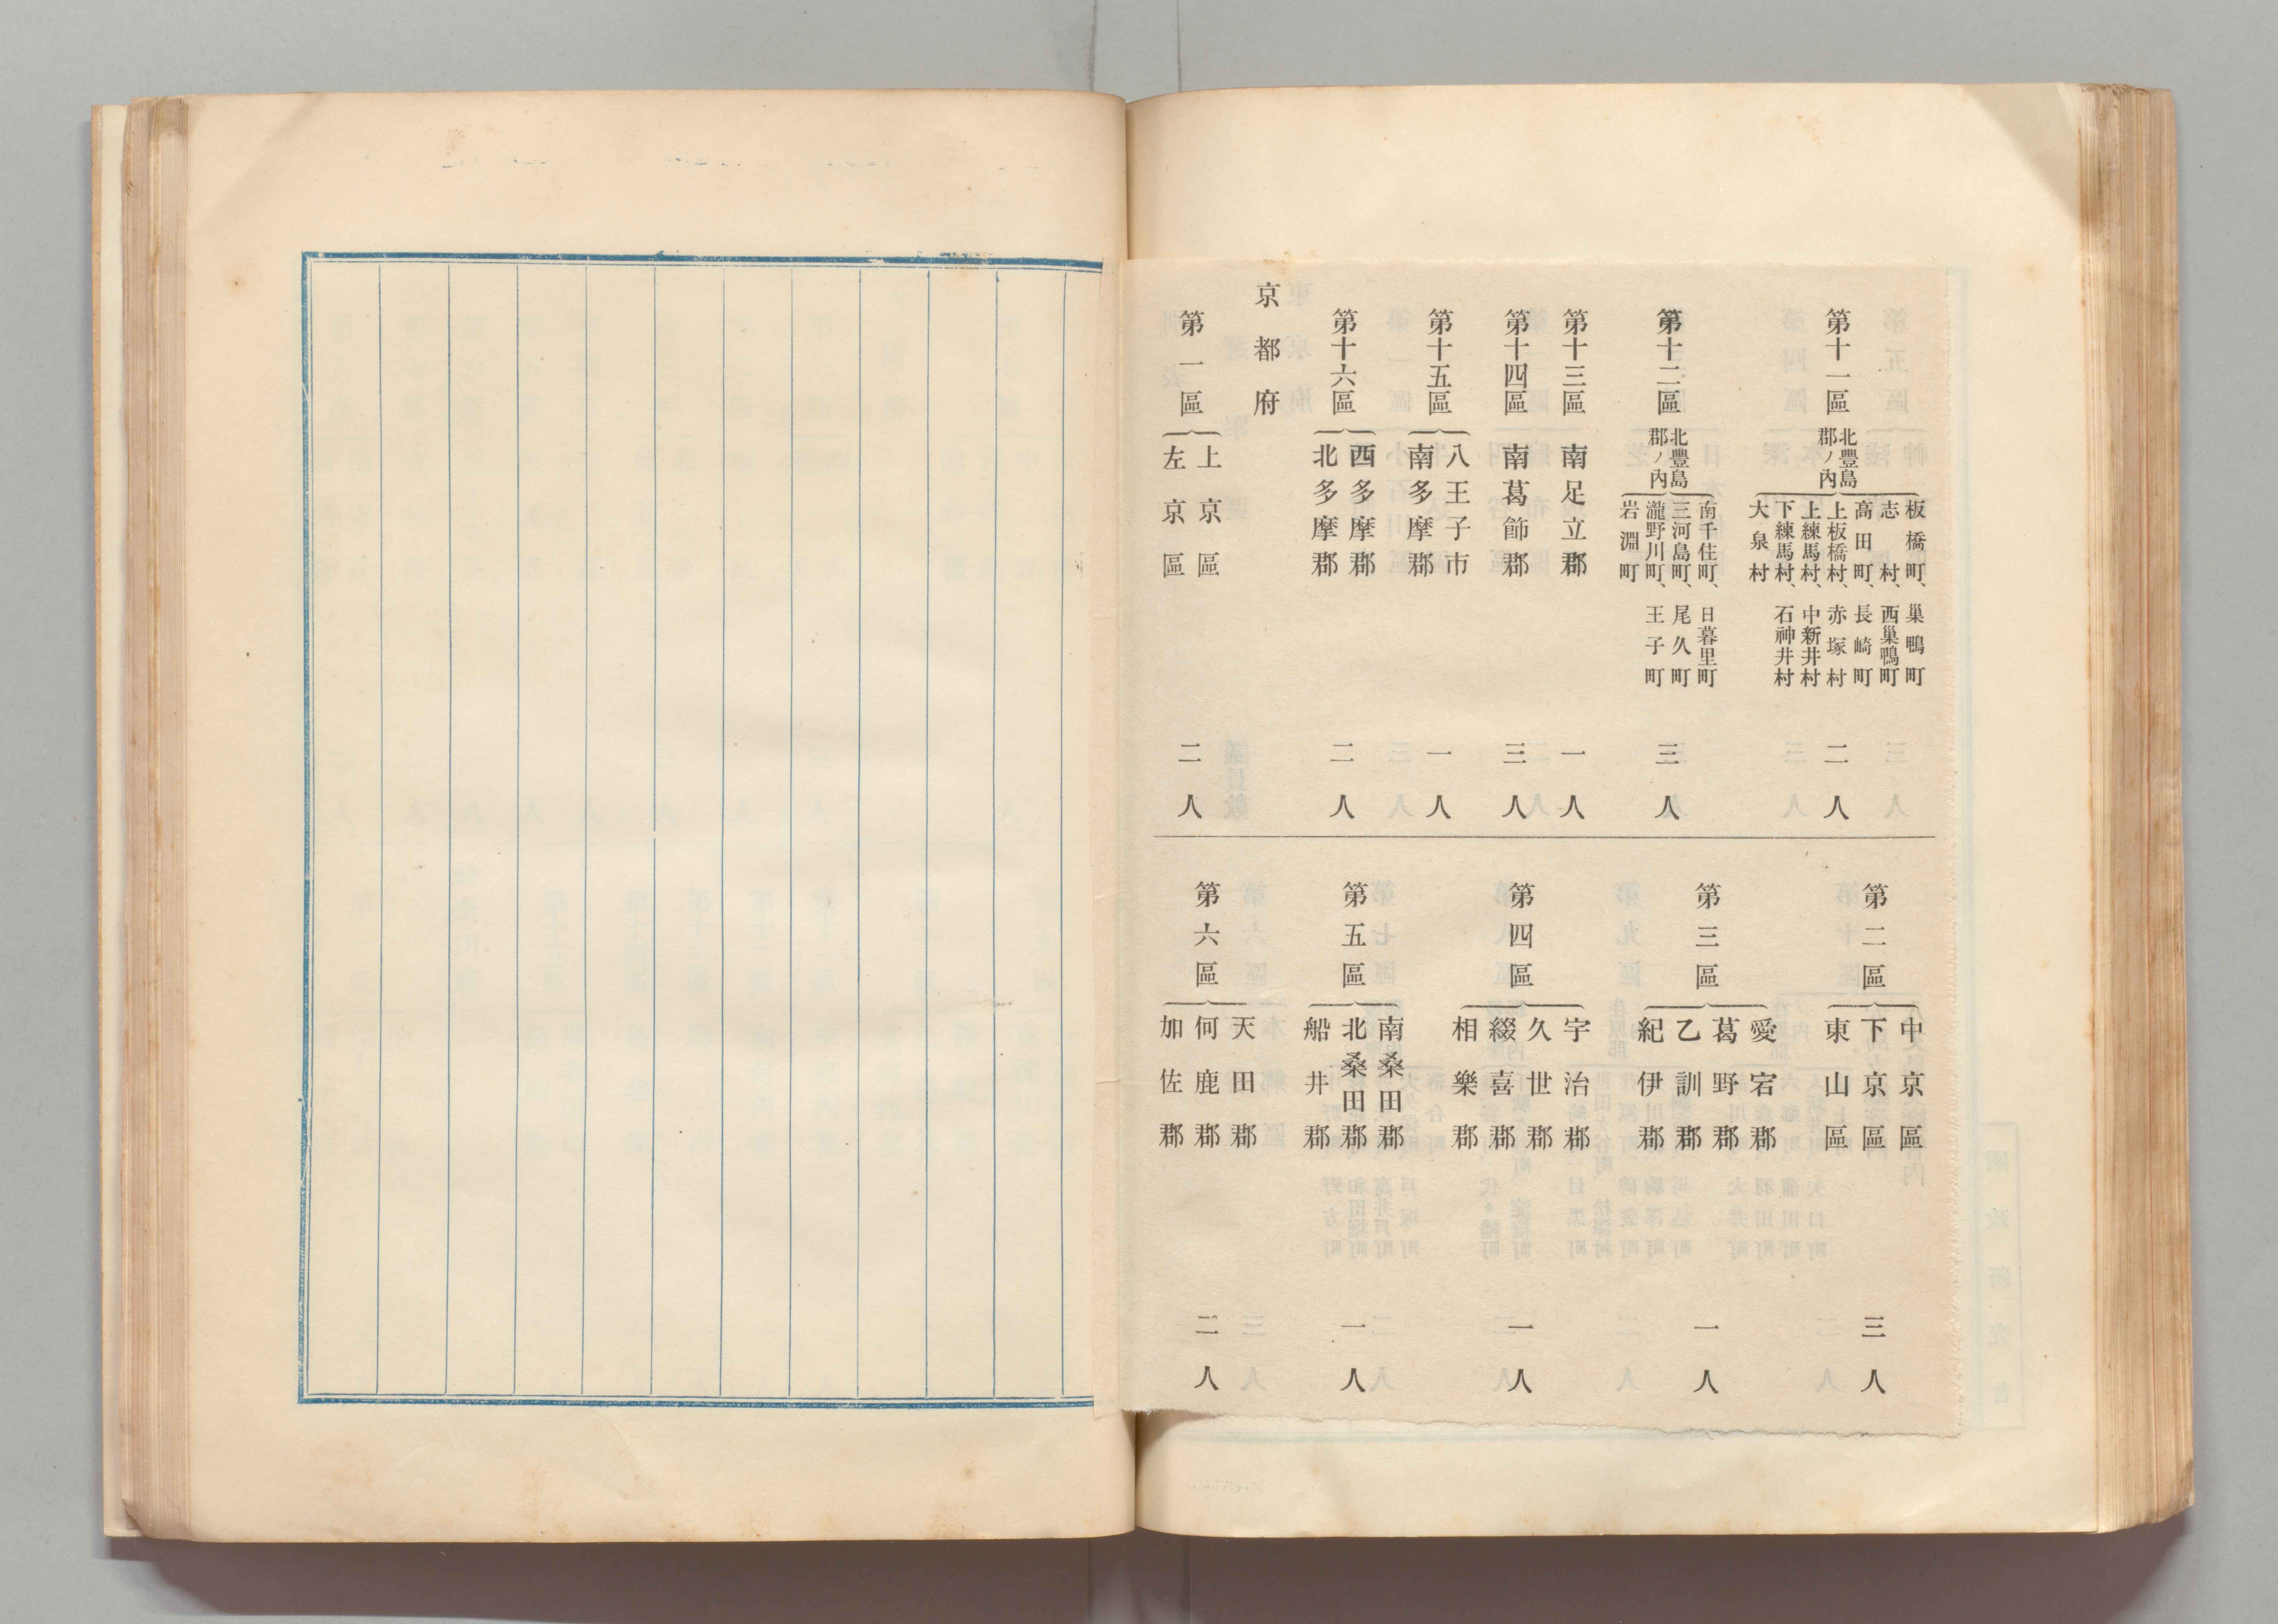 第十一區
北豐島
郡ノ內
板橋町、巢鴨町
志村、西巢鴨町
高田町、長崎町
上板橋村、赤塚村
上練馬村、中新井村
下練馬村、石神井村
大泉村
二人
第十二區
北豐島
郡ノ內
南千住町、日暮里町
三河島町、尾久町
瀧野川町、王子町
岩淵町
三人
第十三區 南足立郡 一人
第十四區 南葛飾郡 三人
第十五區
八王子市
南多摩郡
一人
第十六區
西多摩郡
北多摩郡
二人
京都府
第一區
上京區
左京區
二人
第二區
中京區
下京區
東山區
三人
第三區
愛宕郡
葛野郡
乙訓郡
紀伊郡
一人
第四區
宇治郡
久世郡
綴喜郡
相樂郡
一人
第五區
南桑田郡
北桑田郡
船井郡
一人
第六區
天田郡
何鹿郡
加佐郡
二人